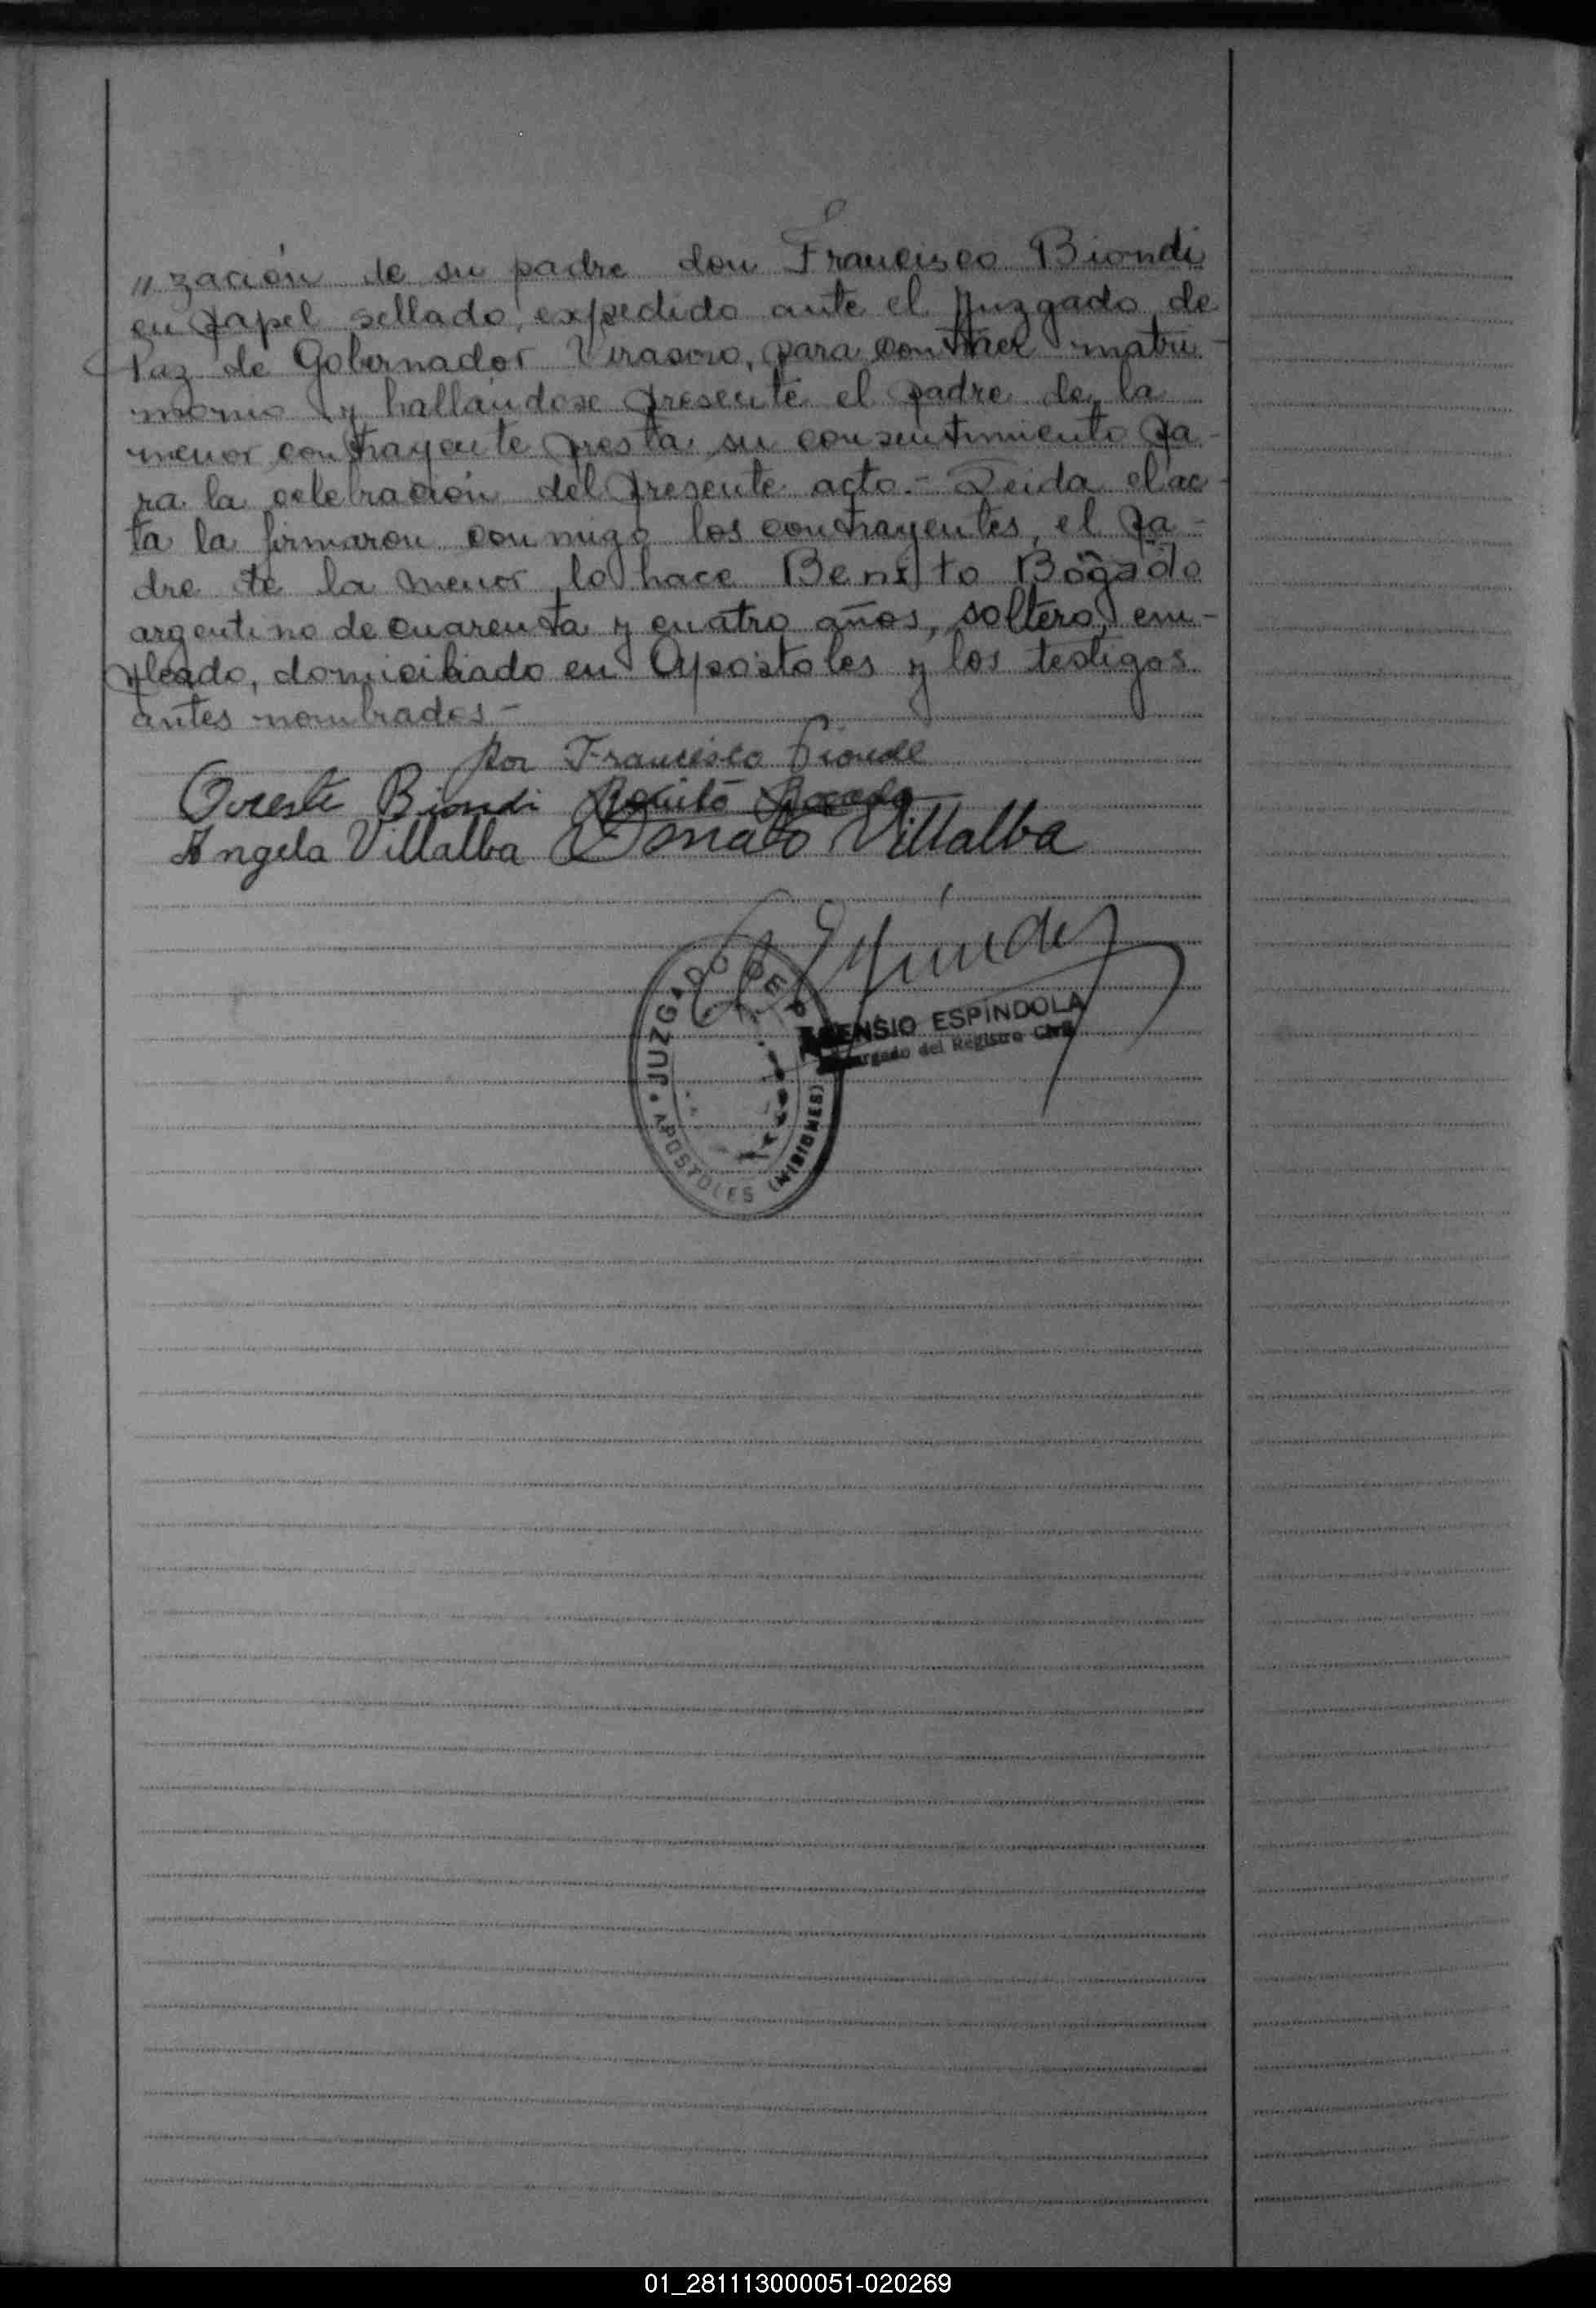 "zación de su padre don Francisco Biondi
en papel sellado, expedido ante el Juzgado de
Paz de Gobernador Virasoro, para contraer matri-
monio y hallandose presente el padre de la
menor contrayente presta su consentimiento pa-
ra la celebración del presente acto.- Leida el ac-
ta la firmaron conmigo los contrayentes, el pa-
dre de la menor lo hace Benito Bogado
argentino de cuarenta y cuatro años, soltero, em-
pleado, domiciliado en Apóstoles y los testigos
antes nombrados-
Por Francisco Biondi
Oreste Biondi Benito Bogado
Angela Villalba Donato Villalba
JUZGADO DE P
ENSIO ESPÍNDOLA
argado del Registro Civil
APOSTOLES (MISIONES)
01_281113000051-020269